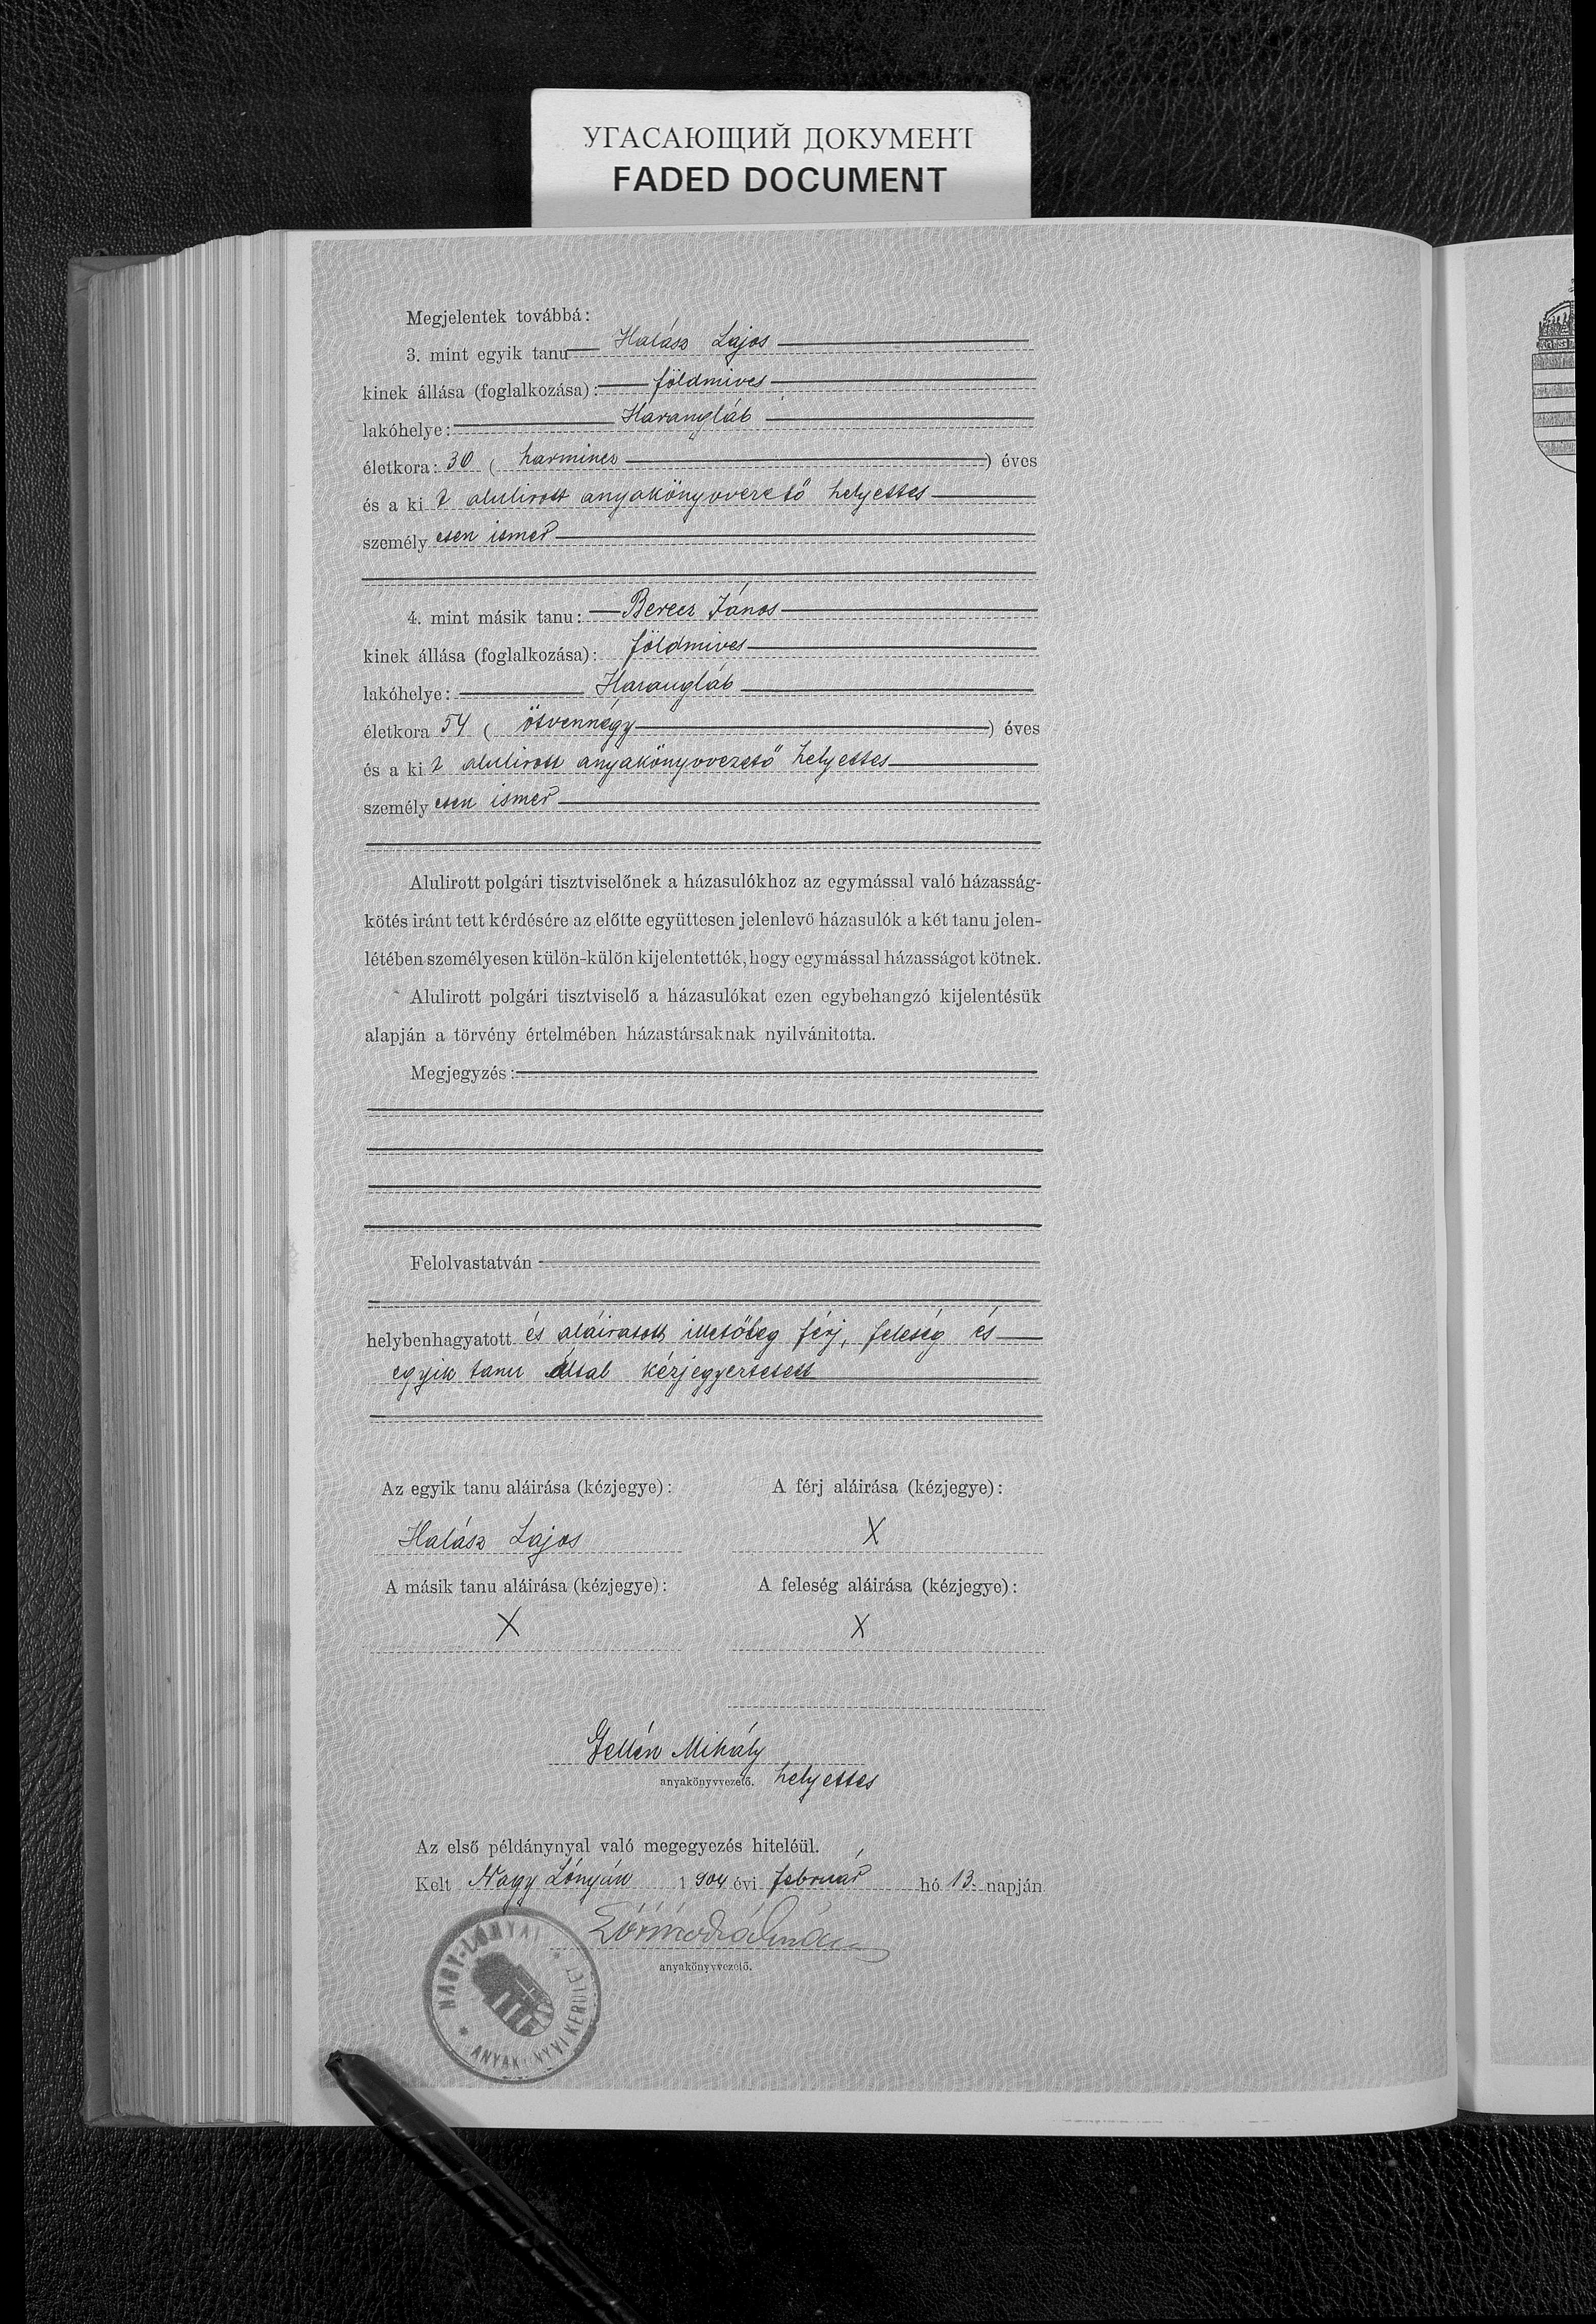 УГАСАЮЩИЙ ДОКУМЕНТ
FADED DOCUMENT
Megjelentek továbbá:
3. mint egyik tanu Halász Lajos
kinek állása (foglalkozása): földmives
lakóhelye: Harangláb
életkora: 30 ( harmincz ) éves
és a ki t alulirott anyakönyvvezető helyettes
személy esen ismer
4. mint másik tanu: Berecz János
kinek állása (foglalkozása): földmives
lakóhelye: Harangláb
életkora 54 ( ötvennégy ) éves
és a ki t alulirott anyakönyvvezető helyettes
személy esen ismer
Alulirott polgári tisztviselőnek a házasulókhoz az egymással való házasság-
kötés iránt tett kérdésére az előtte együttesen jelenlevő házasulók a két tanu jelen-
létében személyesen külön-külön kijelentették, hogy egymással házasságot kötnek.
Alulirott polgári tisztviselő a házasulókat ezen egybehangzó kijelentésük
alapján a törvény értelmében házastársaknak nyilvánitotta.
Megjegyzés:
Felolvastatván
helybenhagyatott és aláiratott illetőleg férj, feleség és
egyik tanu által kézjegyeztetett
Az egyik tanu aláirása (kézjegye): A férj aláirása (kézjegye):
Halász Lajos X
A másik tanu aláirása (kézjegye): A feleség aláirása (kézjegye):
X X
Gellén Mihály
anyakönyvvezető. helyettes
Az első példánynyal való megegyezés hiteléül.
Kelt Nagy Lónyán 1904 évi február hó 13. napján
anyakönyvvezető.
NAGY-LÓNYAI
ANYAKÖNYVI KERÜLET